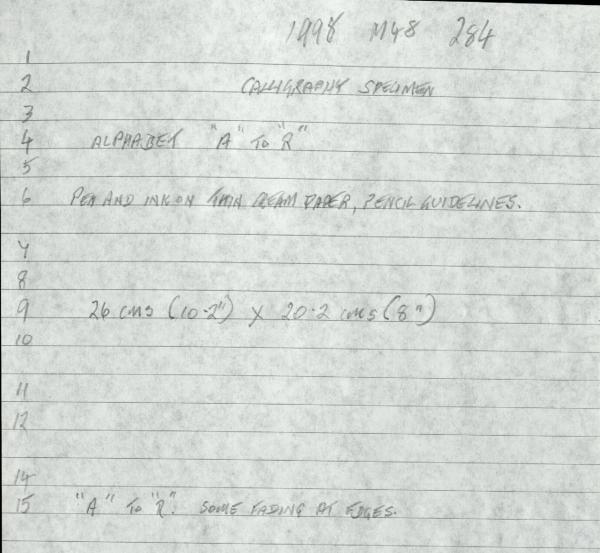 1998 M48 284
1
2 CALLIGRAPHY SPECIMEN
3
4 ALPHABET "A" TO "R"
5
6 PEN AND INK ON THIN CREAM PAPER, PENCIL GUIDELINES.
7
8
9 26 cms (10·2") X 20·2 cms (8")
10
11
12
14
15 "A" TO "R". SOME FADING AT EDGES.